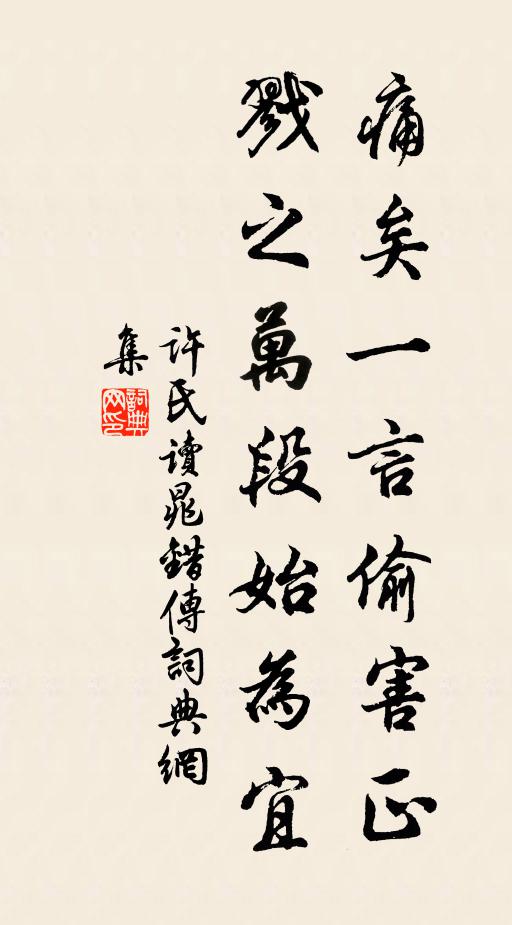 痛矣一言偷害正
戮之萬段始為宜
許氏讀晁錯傳詞典網
集
詞典
网印